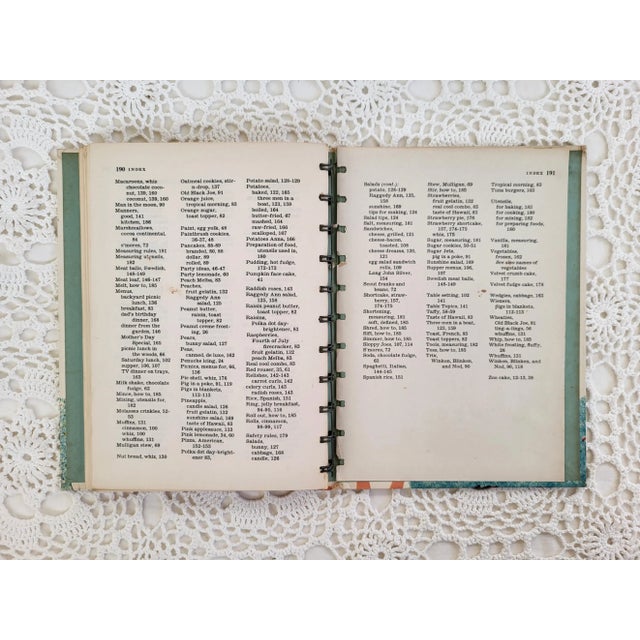 190 INDEX
Macaroons, whiz
chocolate coco-
nut, 139, 160
coconut, 139, 160
Man in the moon, 90
Manners,
good, 141
kitchen, 186
Marshmallows,
cocoa continental,
64
s'mores, 72
Measuring rules, 181
Measuring utensils,
182
Meat balls, Swedish,
148-149
Meat loaf, 146-147
Melt, how to, 185
Menus,
backyard picnic
lunch, 136
breakfast, 83
dad's birthday
dinner, 144
dinner from the
garden, 146
Mother's Day
Special, 165
picnic lunch in
the woods, 64
Saturday lunch, 102
supper, 106, 107
TV dinner on trays,
163
Milk shake, chocolate
fudge, 62
Mince, how to, 185
Mixing, utensils for,
182
Molasses crinkles, 52-
53
Muffins, 131
cinnamon, 100
whiz, 131
cinnamon, 131
Mulligan stew, 69
Nut bread, whiz, 135
Oatmeal cookies, stir-
n-drop, 137
Old Black Joe, 91
Orange juice,
tropical morning, 83
Orange sugar,
toast topper, 83
Paint, egg yolk, 48
Paintbrush cookies,
36-37, 48
Pancakes, 88-89
branded, 50, 88
dollar, 89
rolled, 89
Party ideas, 46-47
Party lemonade, 60
Peach Melba, 83
Peaches,
fruit gelatin, 132
Raggedy Ann
salad, 125
Peanut butter,
raisin, toast
topper, 83
Peanut creme frost-
ing, 29
Pears,
bunny salad, 127
Peas,
canned, de luxe, 162
Picnics, menus for, 66,
136
Pie shell, whiz, 174
Pig in a poke, 91, 119
Pigs in blankets,
112-113
Pineapple,
candle salad, 126
fruit gelatin, 132
sunshine salad, 169
taste of Hawaii, 83
Pink applesauce, 113
Pink lemonade, 24, 60
Pizza, American,
152-153
Polka dot day-bright-
ener 83,
Potato salad, 128-129
Potatoes,
baked, 122, 165
three men in a
boat, 123
boiled, 164
butter-fried, 67
mashed, 164
raw-fried, 166
scalloped, 167
Potatoes Anna, 166
Preparation of food,
utensils used in,
180
Pudding, hot fudge,
172-173
Pumpkin face cake,
41
Radish roses, 143
Raggedy Ann salad,
125, 154
Raisin peanut butter,
83
Raisins,
Polka dot day-
brightener, 83
Raspberries,
Fourth of July
firecracker, 83
fruit gelatin, 132
peach Melba, 83
real cool combo, 83
Red rouser, 35, 61
Relishes, 142-143
carrot curls, 142
celery curls, 143
radish roses, 143
Rice, Spanish, 151
Ring, jelly breakfast,
94-95, 116
Roll out, how to, 185
Rolls, cinnamon,
98-99, 117
Safety rules, 179
Salads,
bunny, 127
cabbage, 168
candle, 126
INDEX 191
Salads (cont.)
potato, 128-129
Raggedy Ann, 125,
154
sunshine, 169
tips for making, 124
Salad tips, 124
Salt, measuring, 181
Sandwiches,
cheese, grilled, 121
cheese-bacon,
toasted, 108
cheese-dreams,
121
egg salad sandwich
rolls, 109
Long John Silver,
154
Secret franks and
beans, 72
Shortcake, straw-
berry, 157,
174-175
Shortening,
measuring, 181
soft, defined, 185
Shred, how to, 185
Sift, how to, 185
Simmer, how to, 185
Sloppy Joes, 107, 114
S'mores, 72
Soda, chocolate fudge,
63
Spaghetti, Italian,
144-145
Spanish rice, 151
Stew, Mulligan, 69
Stir, how to, 185
Strawberries,
fruit gelatin, 132
real cool combo, 83
taste of Hawaii, 83
Strawberry pie, 174
Strawberry shortcake,
157, 174-175
whiz, 175
Sugar, measuring, 181
Sugar cookies, 50-51
Sugar Jets,
pig in a poke, 91
Sunshine salad, 169
Supper menus, 106,
107
Swedish meat balls,
148-149
Table setting, 102,
141
Table Topics, 141
Taffy, 58-59
Taste of Hawaii, 83
Three men in a boat,
123, 139
Toast, French, 93
Toast toppers, 83
Tools, measuring, 182
Trix,
Winken, Blinken,
and Nod, 90
Tropical morning, 83
Tuna burgers, 103
Utensils,
for baking, 183
for cooking, 180
for mixing, 182
for preparing, 180
Vanilla, measuring,
181
Vegetables,
See also names of
vegetables
Velvet crunch cake,
Velvet fudge cake,
176
Wedges, cabbage, 163
Wieners,
pigs in blankets,
112-113
Wheaties,
Old Black Joe, 91
Whip, how to, 185
White frosting, fluffy,
28
Whuffins, 131
Winken, Blinken and
Nod, 90, 118
Zoo cake, 12-13, 39